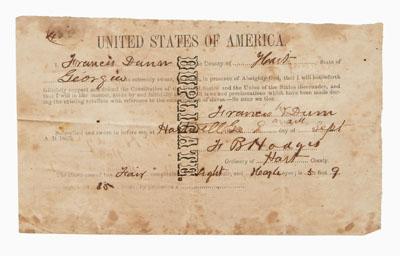 UNITED STATES OF AMERICA.
I, Francis Dunn of the County of Hart State of
Georgia do solemnly swear, in presence of Almighty God, that I will henceforth
faithfully support and defend the Constitution of the United States and the Union of the States thereunder, and
that I will in like manner, abide by and faithfully support all laws and proclamations which have been made during
the existing rebellion with reference to the emancipation of slaves—So help me God.
Francis Dunn
Subscribed and sworn to before me at
Hartwell Ga day of Sept
A. D. 1865.
F B Hodges
Ordinary of Hart County.
Fair complexion Light hair, Hazle eyes; is 5 feet 9
DUPLICATE